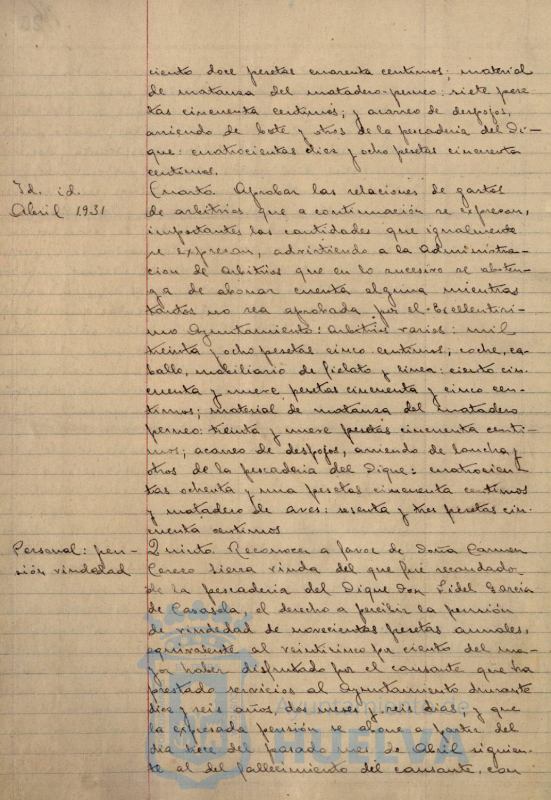 ciento doce pesetas cuarenta centimos; material
de matanza del matadero-perneo: siete pese
tas cincuenta centimos; y acarreo de despojos,
arriendo de bote y otros de la pescaderia del Di-
que: cuatrocientas diez y ocho pesetas cincuenta
centimos.
Id. id.
Abril 1931
Cuarto. Aprobar las relaciones de gastos
de arbitrios que a continuación se expresan,
importantes las cantidades que igualmente
se expresan, advirtiendo a la Administra-
cion de Arbitrios que en lo sucesivo se absten-
ga de abonar cuenta alguna mientras
tantos no sea aprobada por el Excelentisi-
mo Ayuntamiento: Arbitrios varios: mil
treinta y ocho pesetas cinco centimos; coche, ca-
ballo, mobiliario de fielato y linea: ciento cin-
cuenta y nueve pesetas cincuenta y cinco cen-
timos; material de matanza del matadero
perneo: treinta y nueve pesetas cincuenta centi-
mos; acarreo de despojos, arriendo de lancha y
otros de la pescaderia del Dique: cuatrocien-
tas ochenta y una pesetas cincuenta centimos
y matadero de aves: sesenta y tres pesetas cin-
cuenta centimos
Personal: pen-
sión viudedad
Quinto. Reconocer a favor de Doña Carmen
Cerezo Sierra viuda del que fué recaudador
de la pescaderia del Dique Don Fidel Garcia
de Casasola, el derecho a percibir la pensión
de viudedad de novecientas pesetas anuales,
equivalente al veinticinco por ciento del ma-
yor haber disfrutado por el causante que ha
prestado servicios al Ayuntamiento durante
diez y seis años, dos meses y seis dias; y que
la expresada pensión se abone a partir del
dia trece del pasado mes de Abril siguien-
te al del fallecimiento del causante, con
Ayuntamiento de
HUELVA